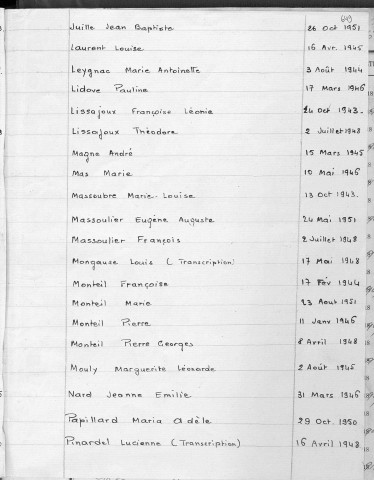 Juille Jean Baptiste 26 Oct 1951
Laurent Louise 16 Avr. 1945
Leygnac Marie Antoinette 3 Août 1944
Lidove Pauline 17 Mars 1946
Lissajoux Françoise Léonie 24 Oct 1943.
Lissajoux Théodore 2 Juillet 1948
Magne André 15 Mars 1945
Mas Marie 10 Mai 1946
Massoubre Marie-Louise 13 Oct 1943.
Massoulier Eugène Auguste 24 Mai 1951
Massoulier François 2 Juillet 1948
Mongause Louis (Transcription) 17 Mai 1948
Monteil Françoise 17 Fév 1944
Monteil Marie 23 Aout 1951
Monteil Pierre 11 Janv 1946
Monteil Pierre Georges 8 Avril 1948
Mouly Marguerite Léonarde 2 Août 1945
Nard Jeanne Emilie 31 Mars 1946
Papillard Maria Adèle 29 Oct. 1950
Pinardel Lucienne (Transcription) 16 Avril 1948